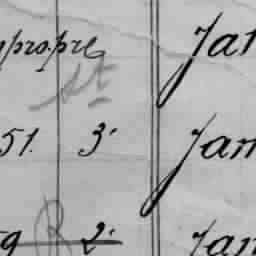 propre Jan
st
51. 3. Jam
9 2. Jan